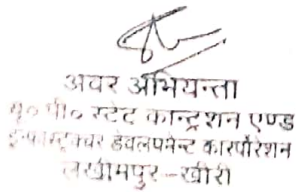 अवर अभियन्ता
यू०पी० स्टेट कान्ट्रशन एण्ड
इन्फ्रास्ट्रक्चर डेवलपमेन्ट कारपोरेशन
लखीमपुर-खीरी